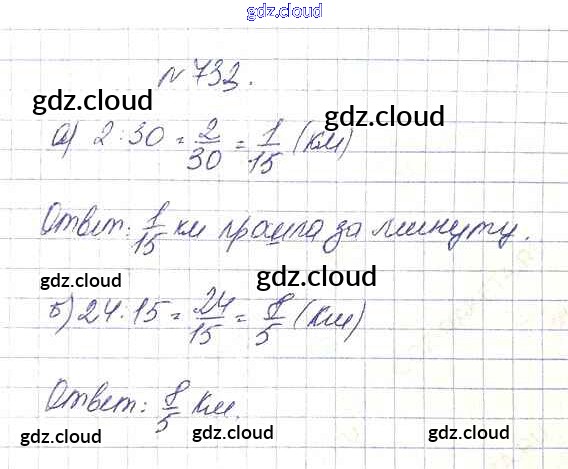 gdz.cloud
№ 733.
gdz.cloud gdz.cloud
а) 2:30 = 2/30 = 1/15 (км)
gdz.cloud gdz.cloud
Ответ: 1/15 км прошла за минуту.
gdz.cloud gdz.cloud
б) 24:15 = 24/15 = 8/5 (км)
gdz.cloud gdz.cloud
Ответ: 8/5 км.
gdz.cloud gdz.cloud gdz.cloud